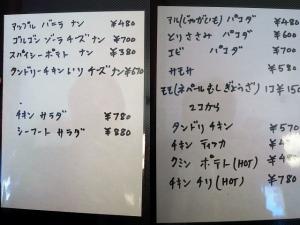 アップル バニラ ナン ¥480
ゴルゴン ゾーラ チーズ ナン ¥700
スパイシー ポテト ナン ¥380
タンドリーチキン いり チーズ ナン ¥570
チキン サラダ ¥780
シーフート サラダ ¥880
アル(じゃがいも) パコダ ¥480
とりささみ パコダ ¥600
エビ パコダ ¥700
サモサ ¥580
モモ(ネパールむしぎょうざ) 1コ ¥150
2コから
タンドリ チキン ¥570
チキン ティッカ
クミン ポテト(HOT)
チキン チリ(HOT) ¥780